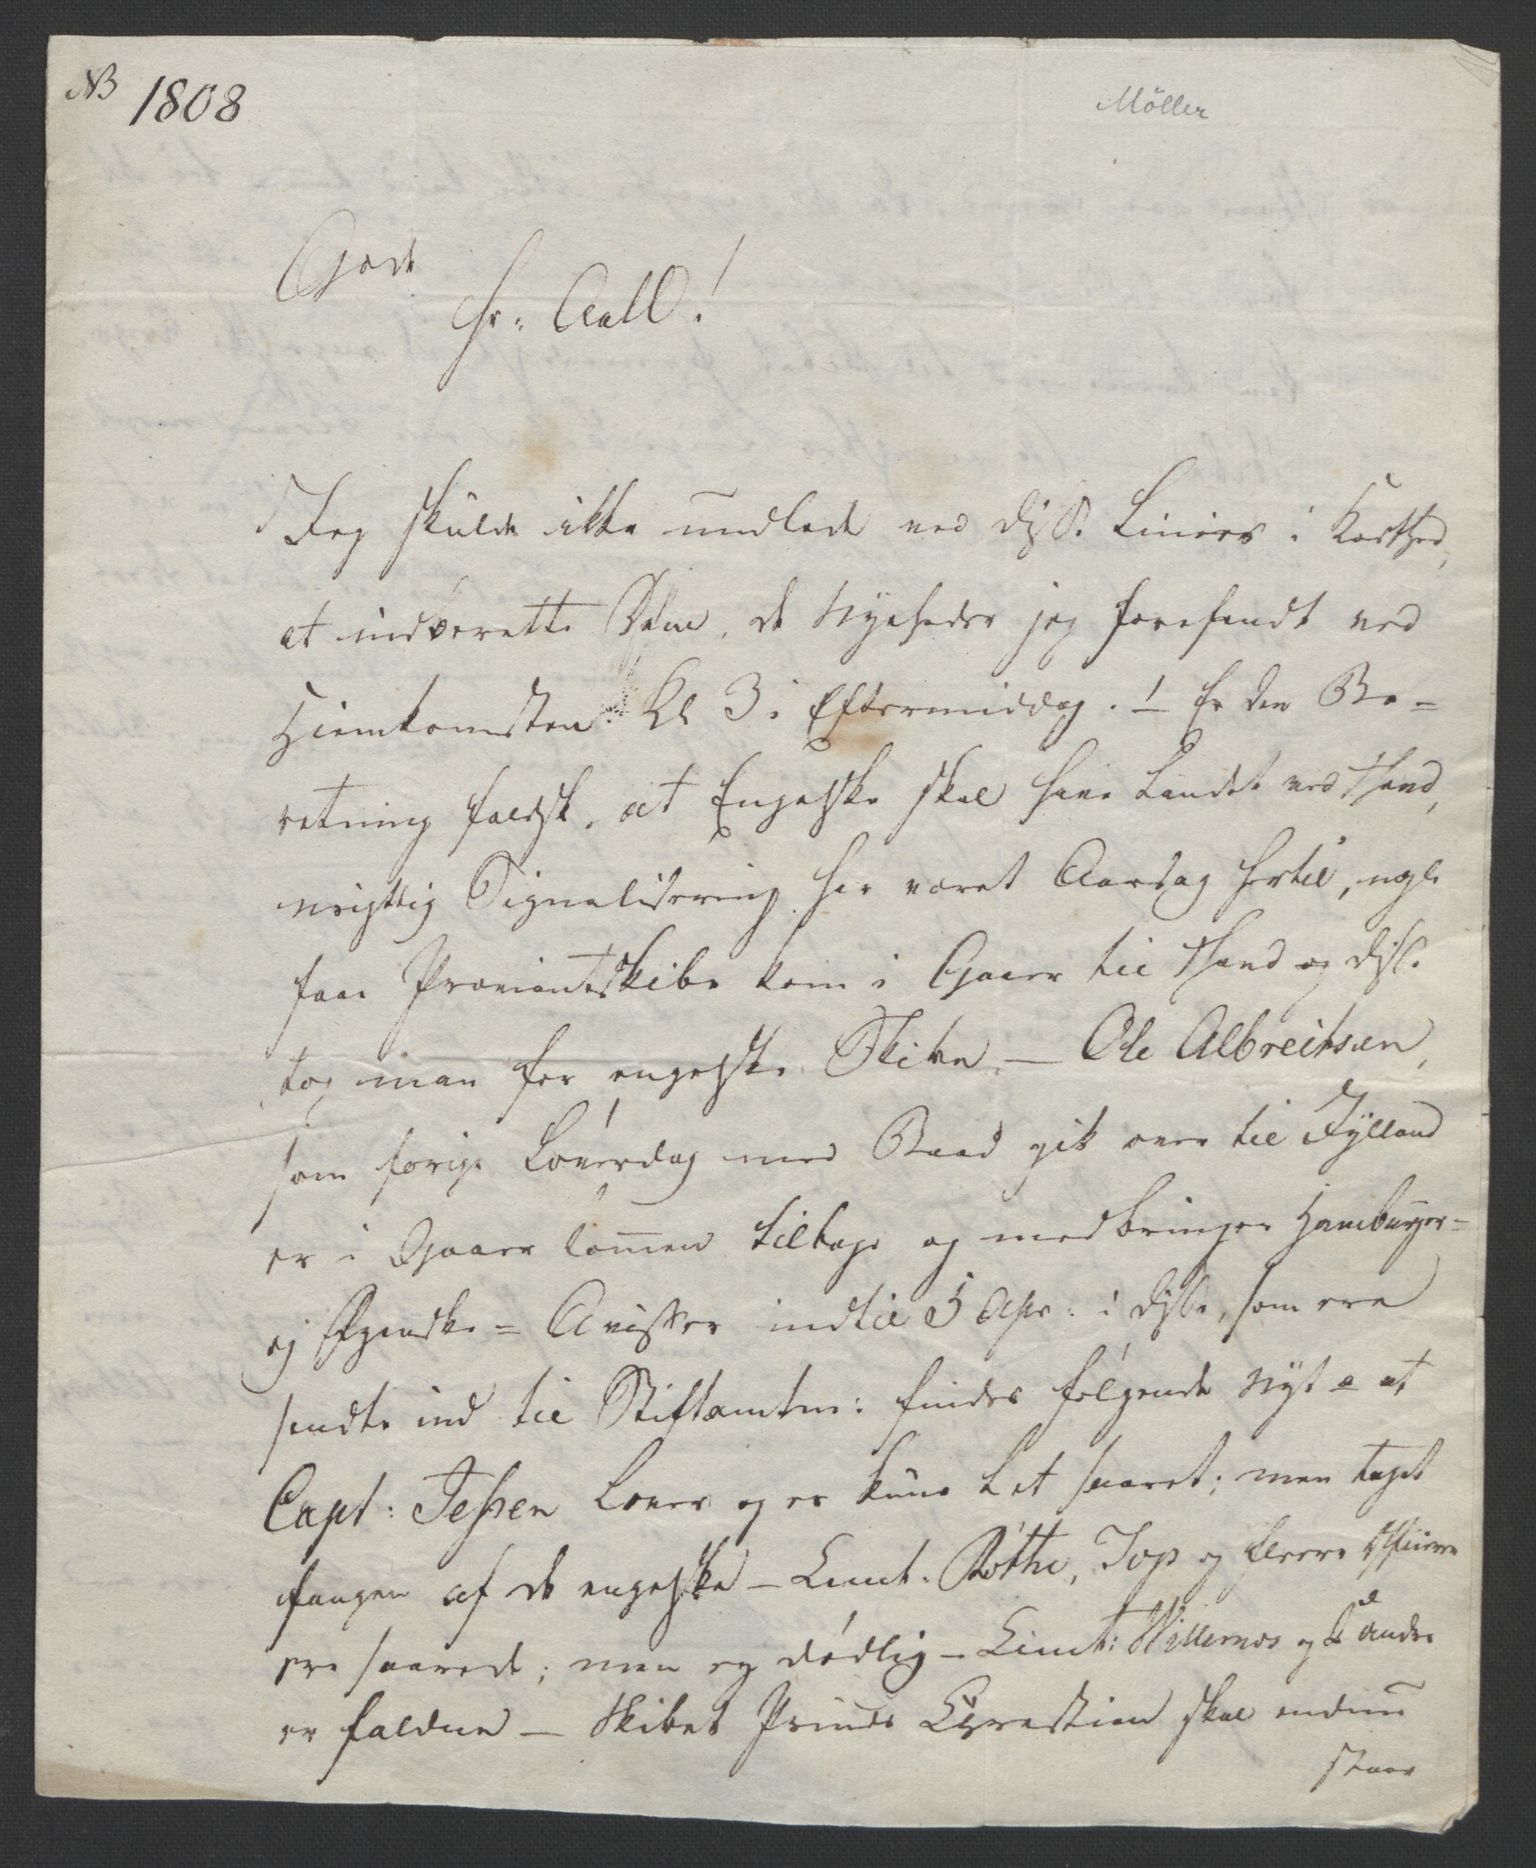 NB 1808
Möller
Gode
Hr: Aall!
Jeg skulde ikke undlade ved disse Linier i Korthed,
at indberette Dem, de Nyeheder jeg forefandt ved
Hiemkomsten Kl 3 i Eftermiddag. 1 Er den Be-
retning falsk, at Engelske skal have Landet ved
urigttig Signalisering har været Aarsag hertil, nogle
faae Proviantskibe kom i Gaaer til og disse
tog man for engelske Skibe. — Ole Albreitsen,
som forige Löverdag med Baad gik over til Jylland
er i Gaaer kommen tilbage og medbringer Hamburger-
og Fyenske- Avisser indtil 5 Apr: i disse, som ere
sendte ind til Stiftamtm: findes fölgende Nyt a at
Capt: Jessen Lever og er kuns let saaret; men taget
fangen af de engelske — Lieut. Röthe, Top og flere
ere saarede; men ey dödlig — Lieut: Willemos og 2 andre
er faldne — Skibet Prinds Chrestian skal endnu
staae